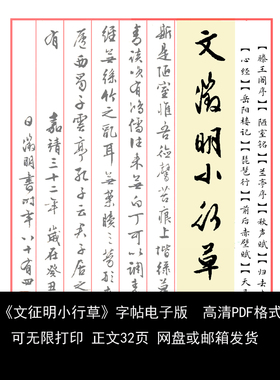 【滕王阁序】【陋室铭】【兰亭序】【秋声赋】【归去
【心经】【岳阳楼记】【琵琶行】【前后赤壁赋】【天
文徵明小行草
斯是陋室惟吾德馨苔痕上堦绿草
青谈笑有鸿儒往来无白丁可以调素
经无丝竹之乱耳无案牍之劳形
庐西蜀子云亭孔子云君子居之
有
嘉靖三十二年岁在癸丑
日徵明书时年八十有四
《文征明小行草》字帖电子版 高清PDF格式
可无限打印 正文32页 网盘或邮箱发货